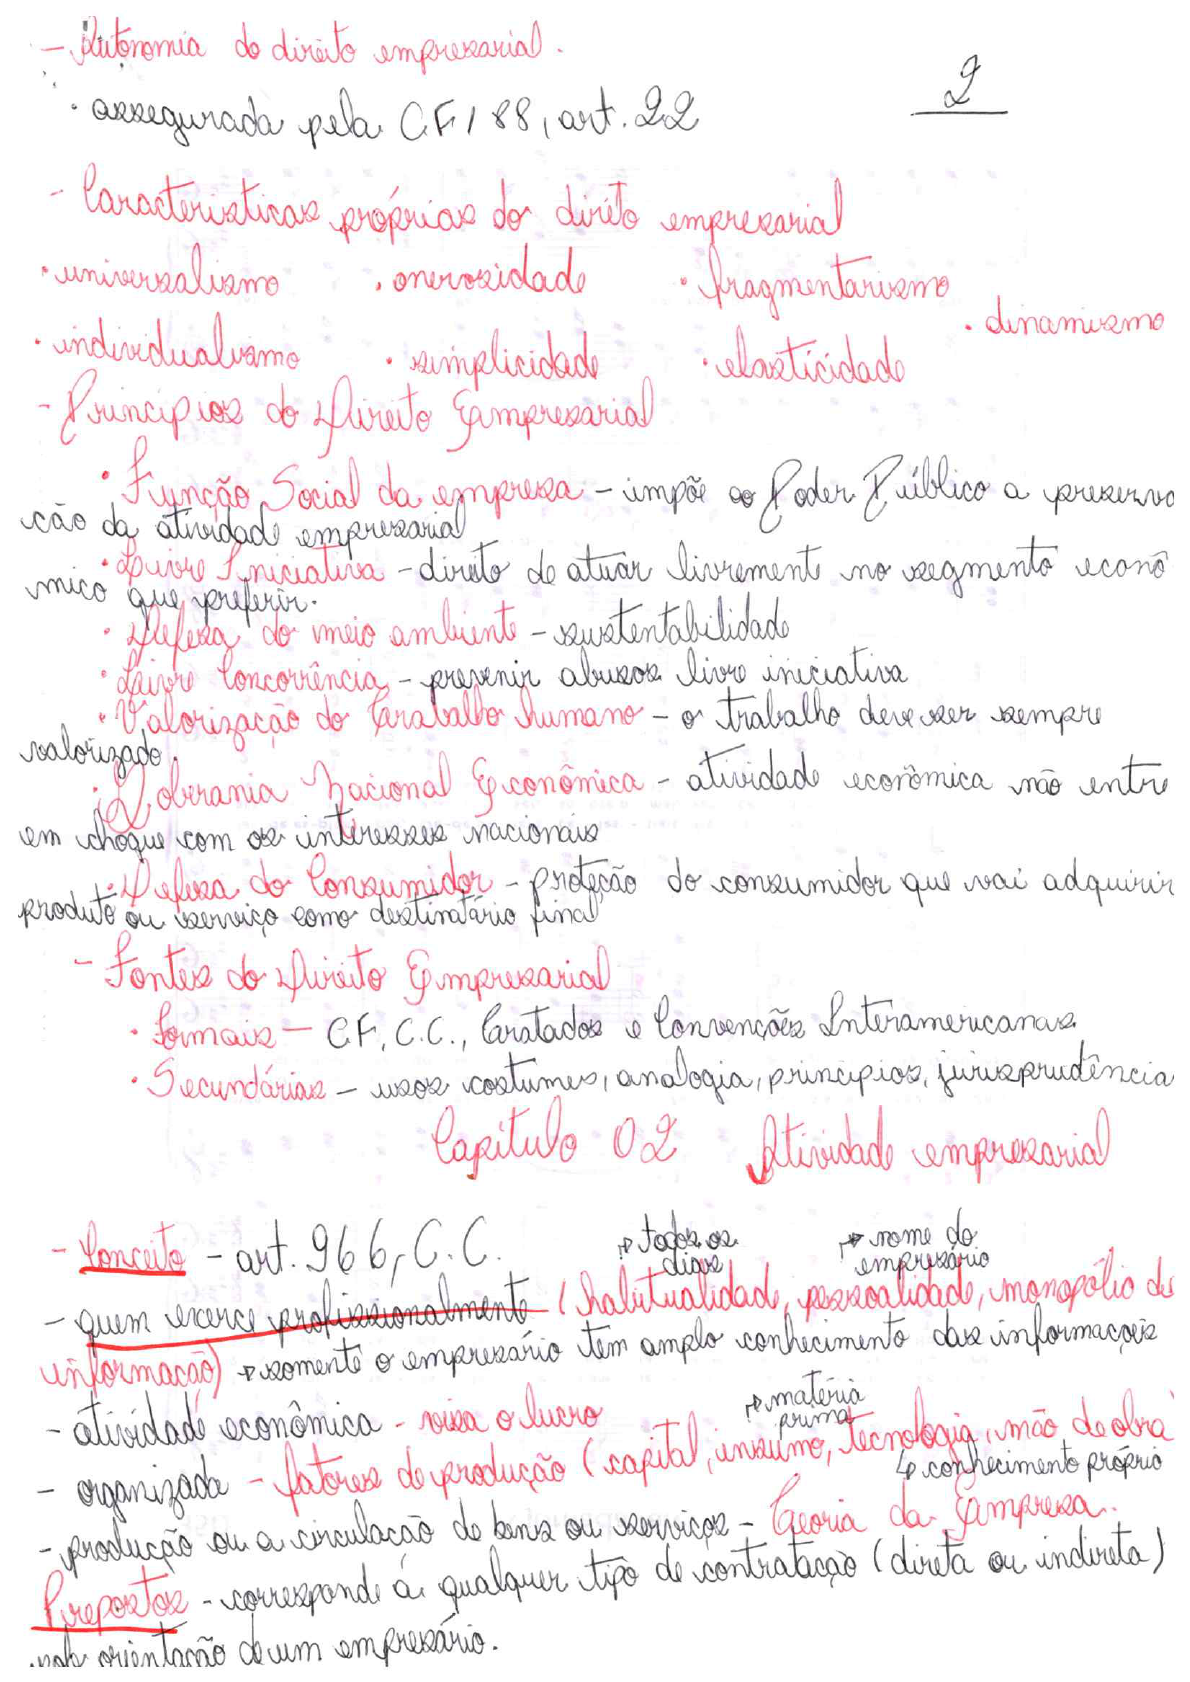 - Autonomia do direito empresarial.
2
· assegurada pela C.F/88, art. 22
- Características próprias do direito empresarial
· universalismo · onerosidade · fragmentarismo
· dinamismo
· individualismo · simplicidade · elasticidade
- Princípios do Direito Empresarial
· Função Social da empresa - impõe ao Poder Público a preserva
ção da atividade empresarial
· Livre Iniciativa - direito de atuar livremente no segmento econô
mico que preferir.
· Defesa do meio ambiente - sustentabilidade
· Livre Concorrência - prevenir abusos livre iniciativa
· Valorização do Trabalho humano - o trabalho deve ser sempre
valorizado.
· Soberania Nacional Econômica - atividade econômica não entre
em choque com os interesses nacionais
· Defesa do Consumidor - proteção do consumidor que vai adquirir
produto ou serviço como destinatário final
- Fontes do Direito Empresarial
· Formais - C.F, C.C., Tratados e Convenções Interamericanas
· Secundárias - usos costumes, analogia, princípios, jurisprudência
Capítulo 02 Atividade empresarial
- Conceito - art. 966, C.C.
↳ todos os dias
↳ nome do empresário
- quem exerce profissionalmente (habitualidade, pessoalidade, monopólio de
informação) → somente o empresário tem amplo conhecimento das informações
- atividade econômica - visa o lucro
↳ matéria prima
- organizada - fatores de produção (capital, insumo, tecnologia, mão de obra
↳ conhecimento próprio
- produção ou a circulação de bens ou serviços - Teoria da Empresa.
Prepostos - corresponde á qualquer tipo de contratação (direta ou indireta)
sob orientação de um empresário.